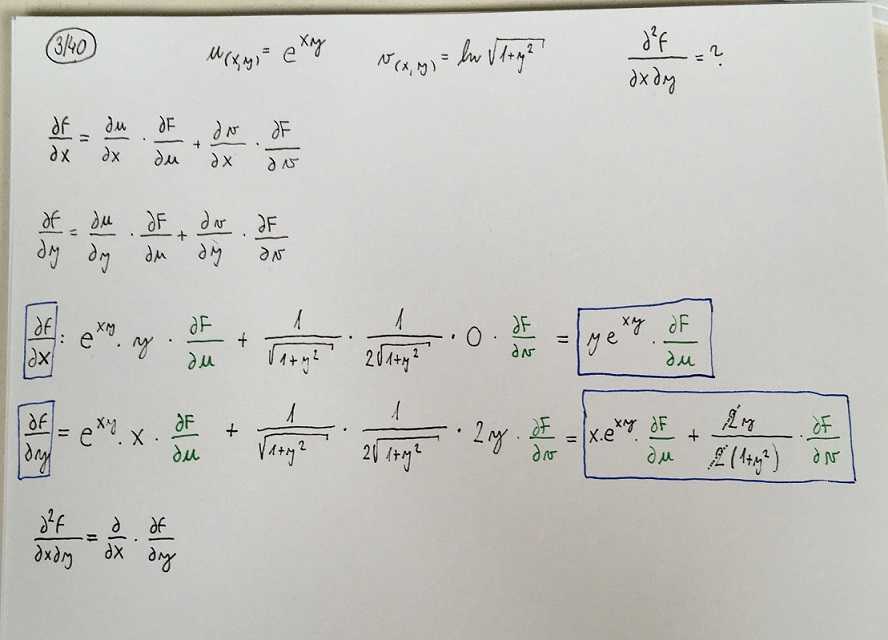 3/40 u(x,y) = e^{xy} v(x,y) = ln √(1+y²) ∂²f/∂x∂y = ?
∂f/∂x = ∂u/∂x · ∂F/∂u + ∂v/∂x · ∂F/∂v
∂f/∂y = ∂u/∂y · ∂F/∂u + ∂v/∂y · ∂F/∂v
∂f/∂x : e^{xy} · y · ∂F/∂u + 1/√(1+y²) · 1/(2√(1+y²)) · 0 · ∂F/∂v = y e^{xy} · ∂F/∂u
∂f/∂y = e^{xy} · x · ∂F/∂u + 1/√(1+y²) · 1/(2√(1+y²)) · 2y · ∂F/∂v = x·e^{xy} · ∂F/∂u + 2y/(2(1+y²)) · ∂F/∂v
∂²f/∂x∂y = ∂/∂x · ∂f/∂y